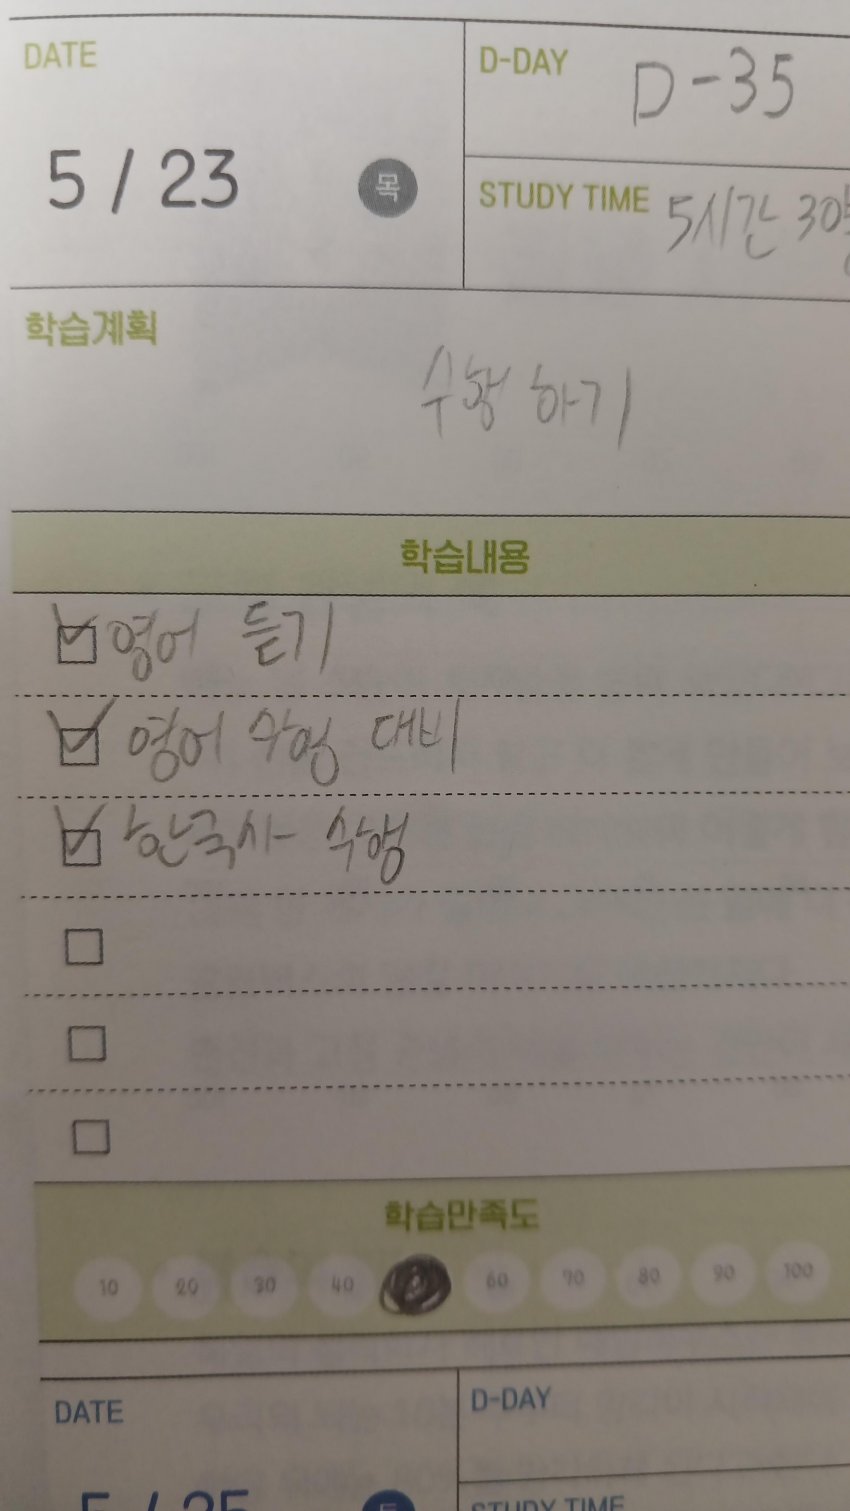 DATE
5 / 23 목
D-DAY D-35
STUDY TIME 5시간 30
학습계획
수행 하기
학습내용
영어 듣기
영어 수행 대비
한국사 수행
학습만족도
10 20 30 40 60 70 80 90 100
DATE
D-DAY
5 / 25
STUDY TIME